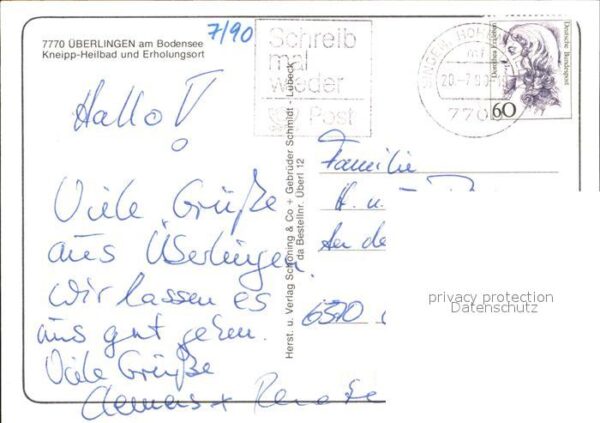 7/90
7770 ÜBERLINGEN am Bodensee
Kneipp-Heilbad und Erholungsort
Hallo!
Viele Grüße
aus Überlingen.
Wir lassen es
uns gut gehen.
Viele Grüße
Clemens + Renate
Herst. u. Verlag Schöning & Co + Gebrüder Schmidt - Lübeck
da Bestellnr. Überl 12
Schreib
mal
wieder
Post
20.-7.90
770
Deutsche Bundespost
Dorothea Erxleben
60
Familie
H. u.
An de
privacy protection
Datenschutz